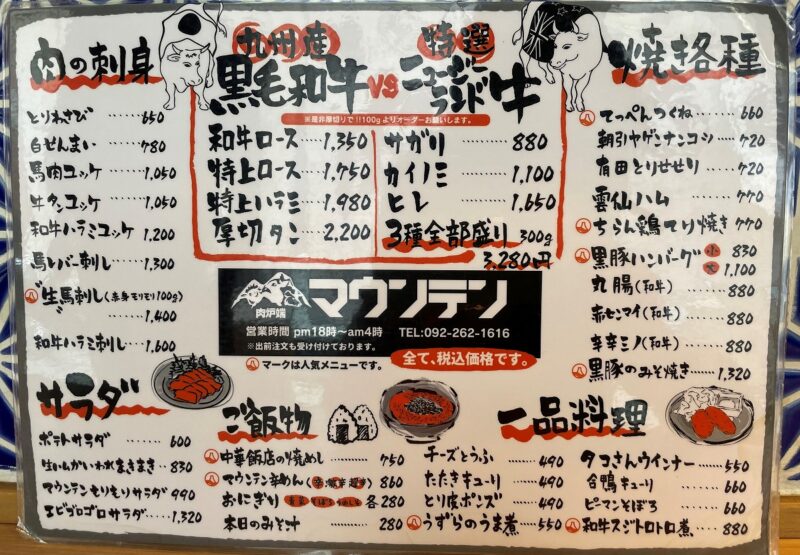 肉の刺身
とりわさび 650
白せんまい 780
馬肉ユッケ 1,050
牛タンユッケ 1,050
和牛ハラミユッケ 1,200
馬レバー刺し 1,300
生馬刺し(赤身モリモリ100g)
1,400
和牛ハラミ刺し 1,600
九州産
黒毛和牛
VS
特選
ニュージーランド牛
※是非厚切りで!!100gよりオーダーお願いします。
和牛ロース 1,350
特上ロース 1,750
特上ハラミ 1,980
厚切タン 2,200
サガリ 880
カイノミ 1,100
ヒレ 1,650
3種全部盛り 300g
3,280円
焼き各種
てっぺんつくね 660
朝引ヤゲンナンコツ 720
有田とりせせり 720
雲仙ハム 770
ちらん鶏てり焼き 770
黒豚ハンバーグ 小 830
大 1,100
丸腸(和牛) 880
赤センマイ(和牛) 880
辛辛ミノ(和牛) 880
黒豚のみそ焼き 1,320
肉炉端
マウンテン
営業時間 pm18時〜am4時 TEL:092-262-1616
※出前注文も受け付けております。
マークは人気メニューです。
全て、税込価格です。
サラダ
ポテトサラダ 600
生ハムかいわれまきまき 830
マウンテンもりもりサラダ 990
エビゴロゴロサラダ 1,320
ご飯物
中華飯店の焼めし 750
マウンテン辛めん 860
おにぎり 各280
本日のみそ汁 280
一品料理
チーズとうふ 490
たたきキューリ 490
とり皮ポンズ 490
うずらのうま煮 550
タコさんウインナー 550
合鴨キューリ 660
ピーマンそぼろ 660
和牛スジトロトロ煮 880